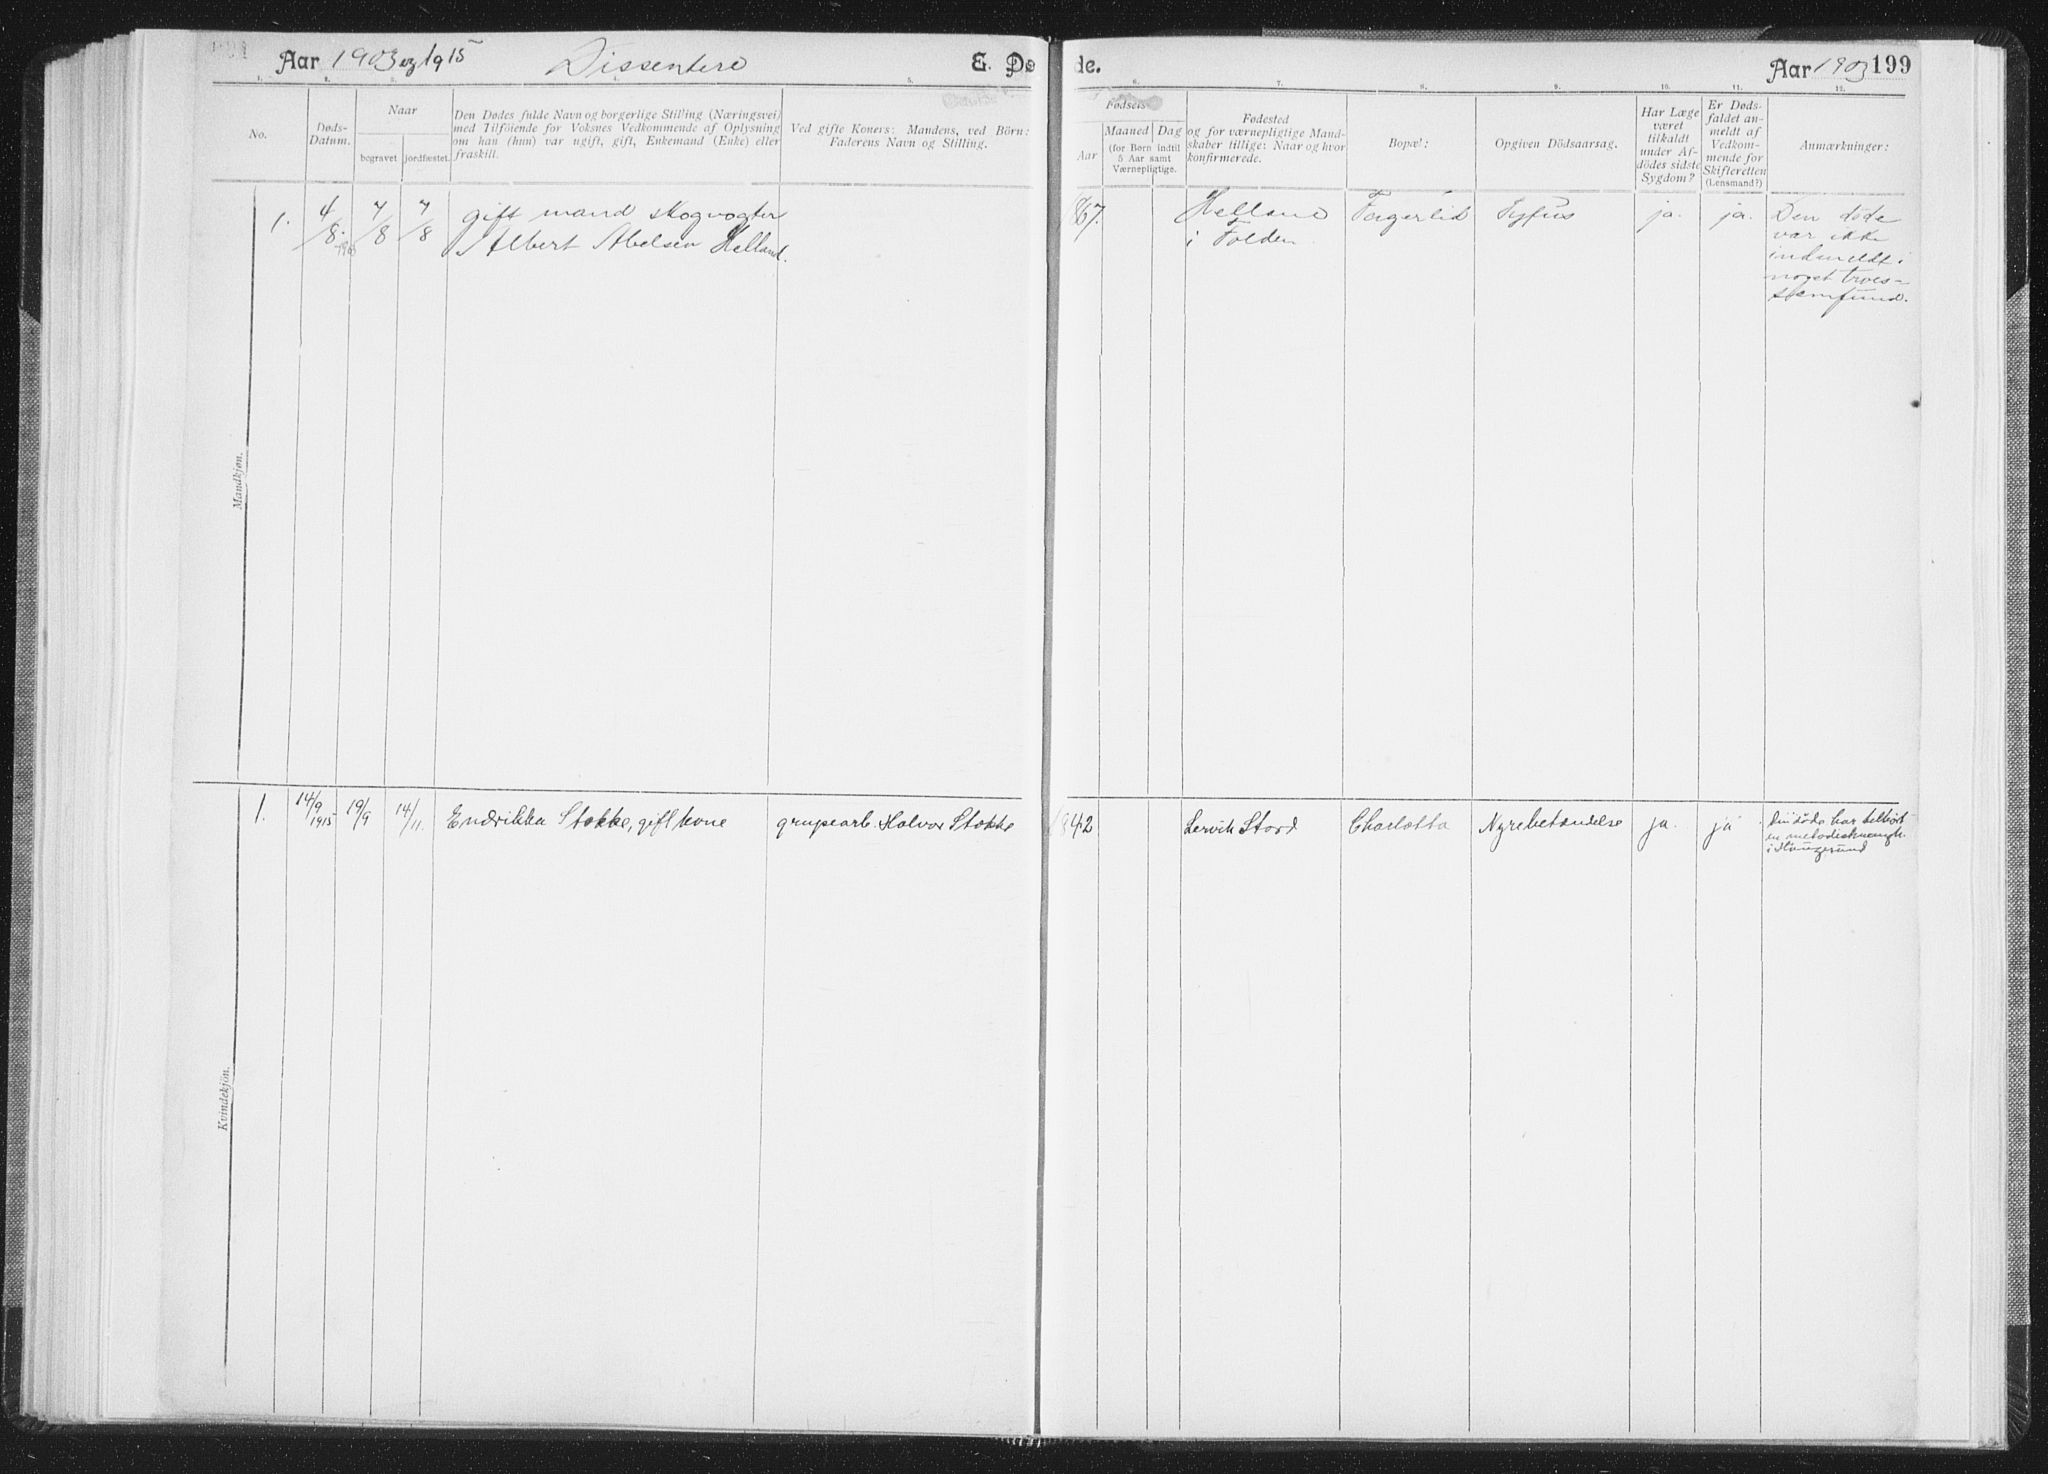 Aar 1903 og 1915 Dissentere E. Dø de. Aar 1903 199
1. 2. 3. 4. 5. 6. 7. 8. 9. 10. 11. 12.
No.
Døds-
Datum.
Naar
begravet jordfæstet.
Den Dødes fulde Navn og borgerlige Stilling (Næringsvei)
med Tilföiende for Voksnes Vedkommende af Oplysning
om han (hun) var ugift, gift, Enkemand (Enke) eller
fraskill.
Ved gifte Koners: Mandens, ved Börn:
Faderens Navn og Stilling.
Fødsels
Aar
Maaned Dag
(for Børn indtil
5 Aar samt
Værnepligtige.
Fødested
og for værnepligtige Mand-
skaber tillige: Naar og hvor
konfirmerede.
Bopæl:
Opgiven Dödsaarsag.
Har Læge
været
tilkaldt
under Af-
dödes sidste
Sygdom?
Er Døds-
faldet an-
meldt af
Vedkom-
mende for
Skifteretten
(Lensmand?)
Anmærkninger:
Mandkjøn.
1. 4/8. 7/8 7/8 gift mand skogvogter
Albert Abelsen Helland.
867. Helland
i Folden.
Fagerlid Tyfus ja. ja.
Den døde
var ikke
indmeldt i
noget troes-
samfund.
Kvindekjön.
1. 14/9 1915 19/9 14/11. Endrikka Stokke, gift kone grupearb. Halvor Stokke
842 Lervik Stord Charlotta Nyrebetændelse ja. ja
Den døde har tilhört
en metodistmenigh.
i Haugesund